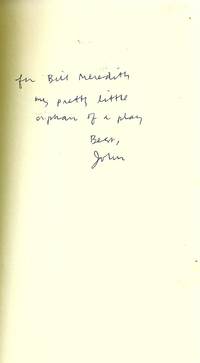 for Bill Meredith
my pretty little
orphan of a play
Best,
John